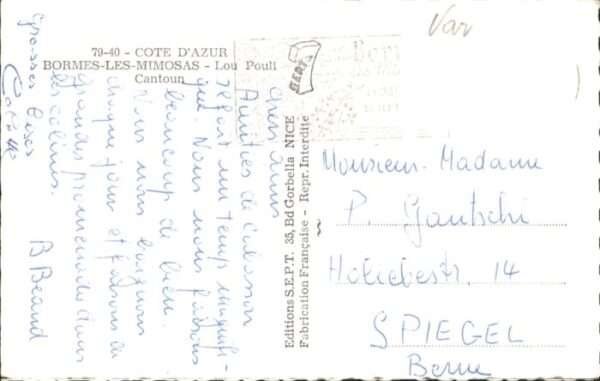 79-40 - COTE D'AZUR
BORMES-LES-MIMOSAS - Lou Pouli
Cantoun
Var
Chers amis
de Cavasson
un temps magnifi-
que. Nous nous faisons
beaucoup de bien.
Nous nous baignons
chaque jour et faisons de
grandes promenades dans
les collines.
Grosses bises
B Beaud
SEPT
Editions S.E.P.T. 35, Bd Gorbella NICE
Fabrication Française - Repr. Interdite
Monsieur-Madame
P. Gautschi
14
SPIEGEL
Berne